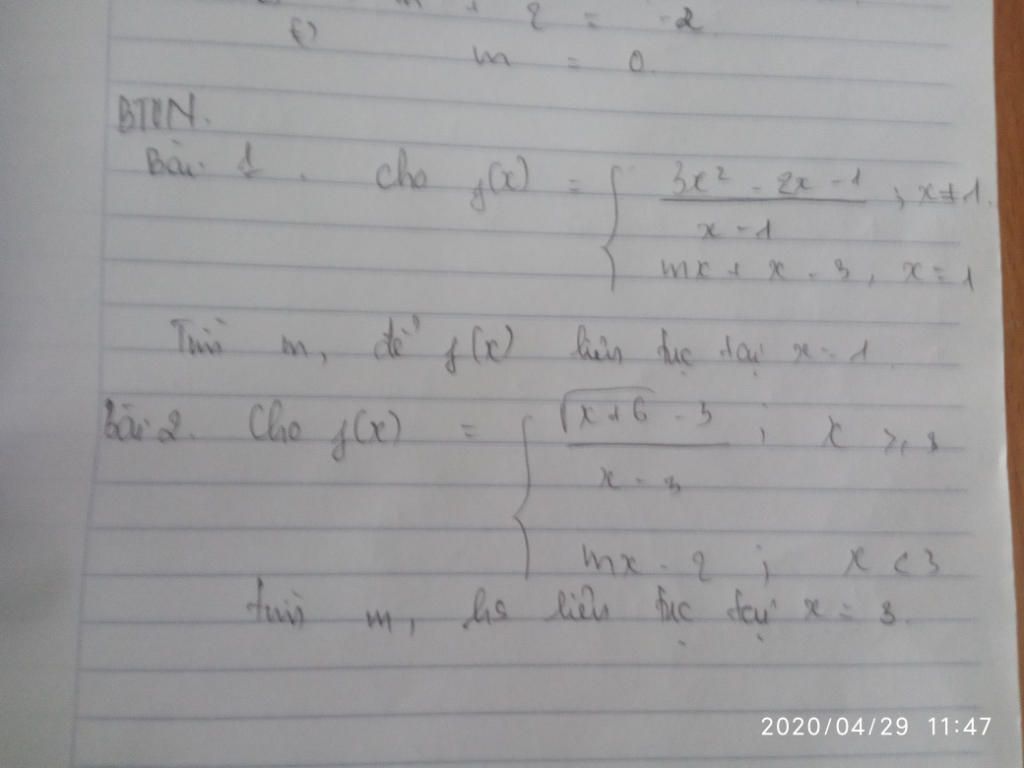 m + 2 = -2
m = 0.
BTVN.
Bài 1. Cho f(x) = { (3x² - 2x - 1)/(x - 1) ; x ≠ 1.
mx + x - 3, x = 1
Tìm m, để f(x) liên tục tại x = 1
Bài 2. Cho f(x) = { (√(x+6) - 3)/(x - 3) ; x ≥ 3
mx - 2 ; x < 3
tìm m, hs liên tục tại x = 3.
2020/04/29 11:47